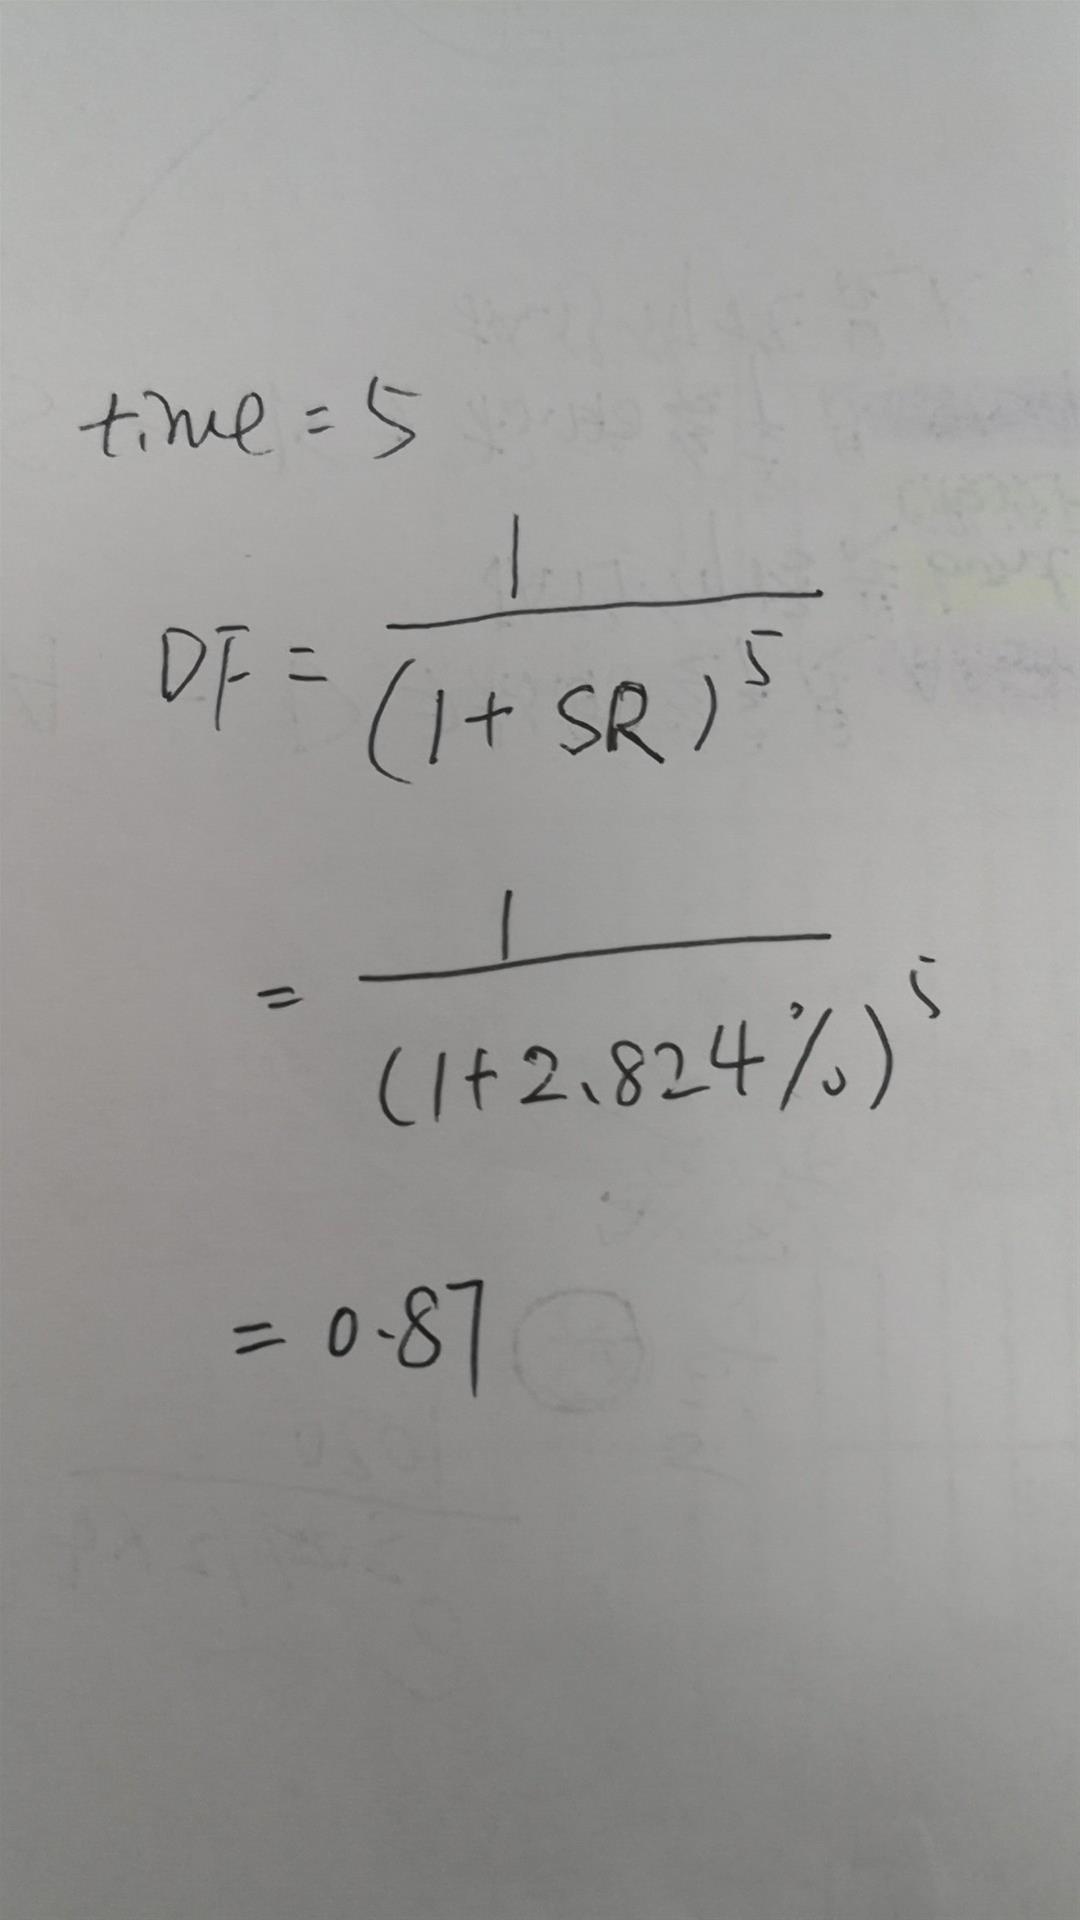 time = 5
DF = 1 / (1 + SR)^5
= 1 / (1+2.824%)^5
= 0.87